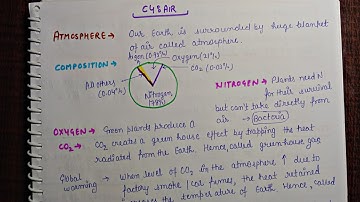 C4 & AIR
ATMOSPHERE → Our Earth is surrounded by huge blanket
of air called atmosphere.
COMPOSITION → Oxygen (21%)
CO₂ (0.03%)
All others
(0.04%)
Nitrogen
(78%)
NITROGEN → Plants need N
for their survival
but can't take directly from
air → Bacteria
OXYGEN → Green plants produce O
CO₂ → CO₂ creates a green house effect by trapping the heat
radiated from the Earth. Hence, called green house gas
Global warming → When level of CO₂ in the atmosphere ↑ due to
factory smoke / car fumes, the heat retained
the temperature of Earth. Hence, called